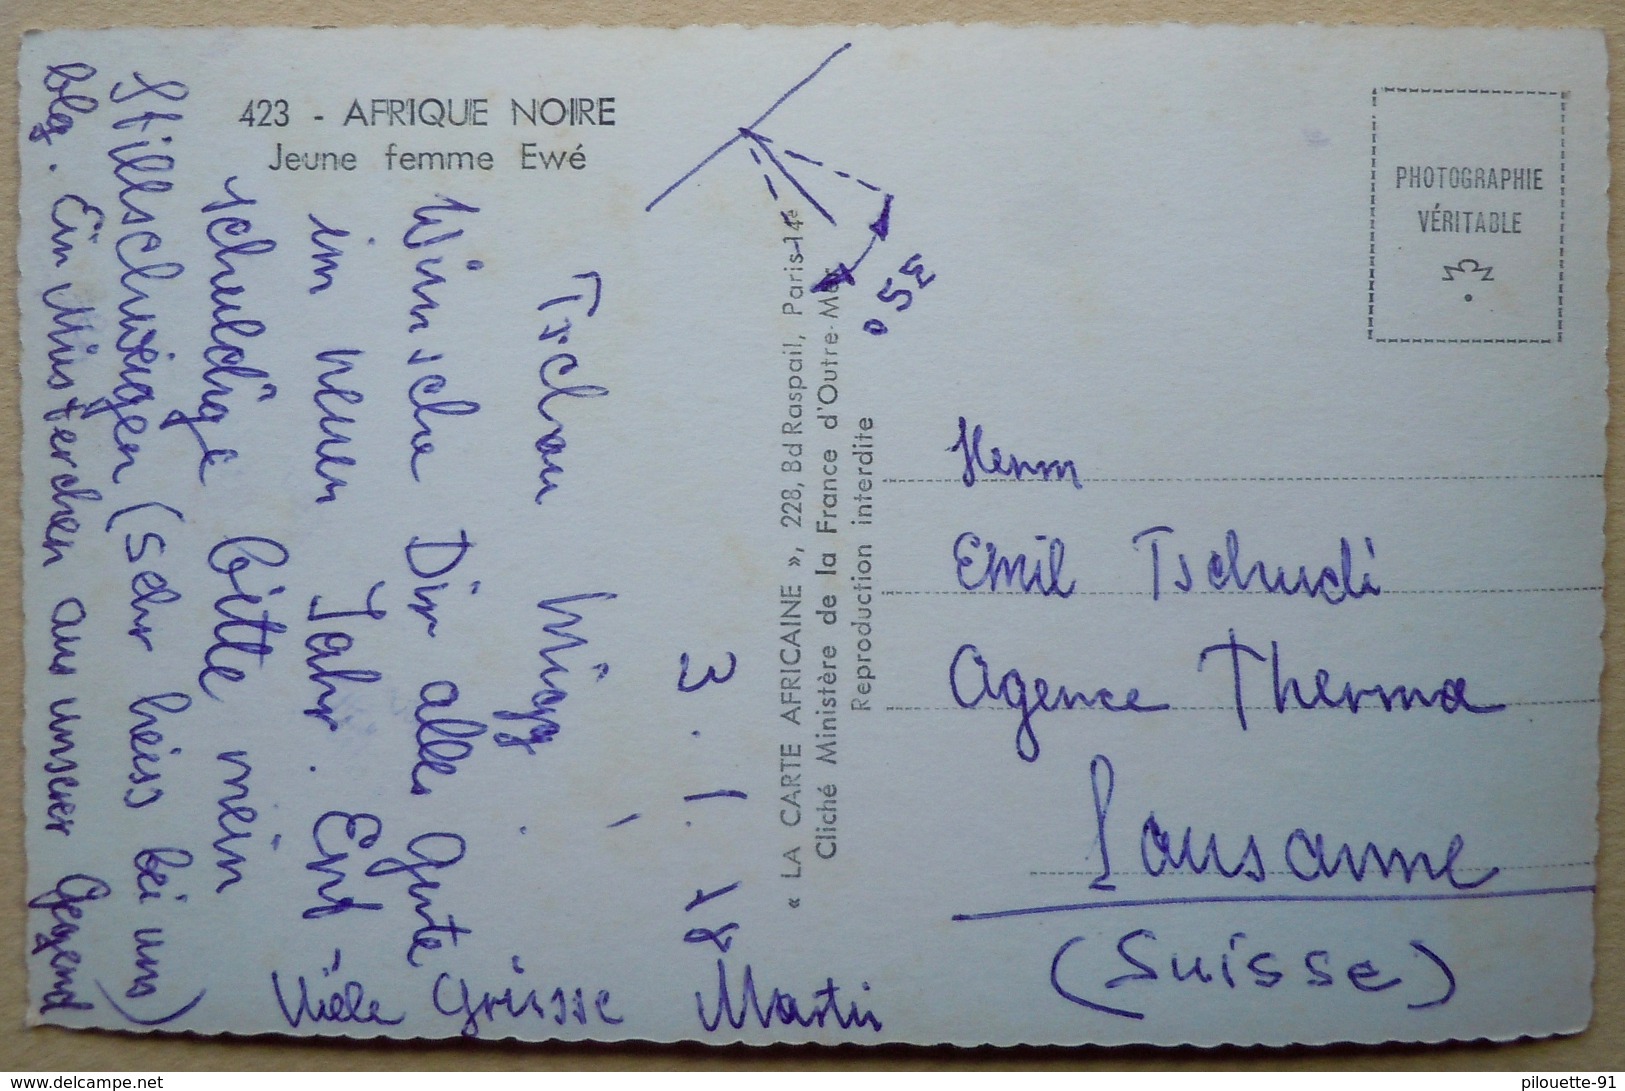 423 - AFRIQUE NOIRE
Jeune femme Ewé
3. 1.
Tschau Migg.
Wünsche Dir alles Gute
im neuen Jahr. Ent-
schuldige bitte mein
Stillschweigen (sehr heiss bei uns)
blg. Ein Müsterchen aus unserer Gegend
Viele Grüsse Martin
« LA CARTE AFRICAINE », 228, Bd Raspail, Paris-14e
Cliché Ministère de la France d'Outre-Mer
Reproduction interdite
PHOTOGRAPHIE
VÉRITABLE
Herrn
Emil Tschudi
Agence Therma
Lausanne
(Suisse)
www.delcampe.net
pilouette-91